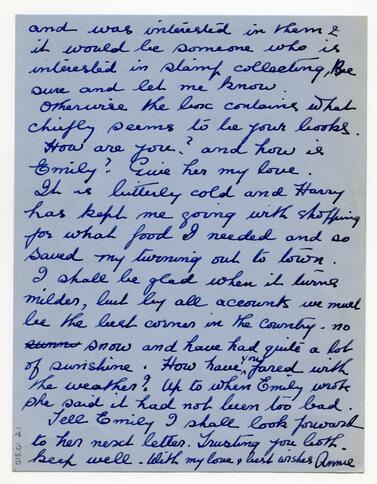 and was interested in them &
it would be someone who is
interested in stamp collecting, Be
sure and let me know.
Otherwise the box contains what
chiefly seems to be your books.
How are you? and how is
Emily? Give her my love.
It is bitterly cold and Harry
has kept me going with shopping
for what food I needed and so
saved my turning out to town.
I shall be glad when it turns
milder, but by all accounts we must
be the best corner in the country - no
snow and have had quite a lot
of sunshine. How have you fared with
the weather? Up to when Emily wrote
she said it had not been too bad.
Tell Emily I shall look forward
to her next letter. Trusting you both
keep well. With my love & best wishes Annie
015.01.21